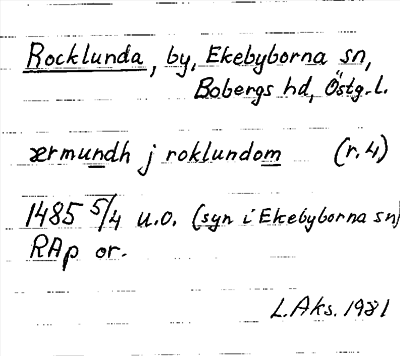 Rocklunda, by, Ekebyborna sn,
Bobergs hd, Östg.l.
ærmundh j roklundom (r.4)
1485 5/4 u.o. (syn i Ekebyborna sn)
RAp or.
L.Aks. 1981